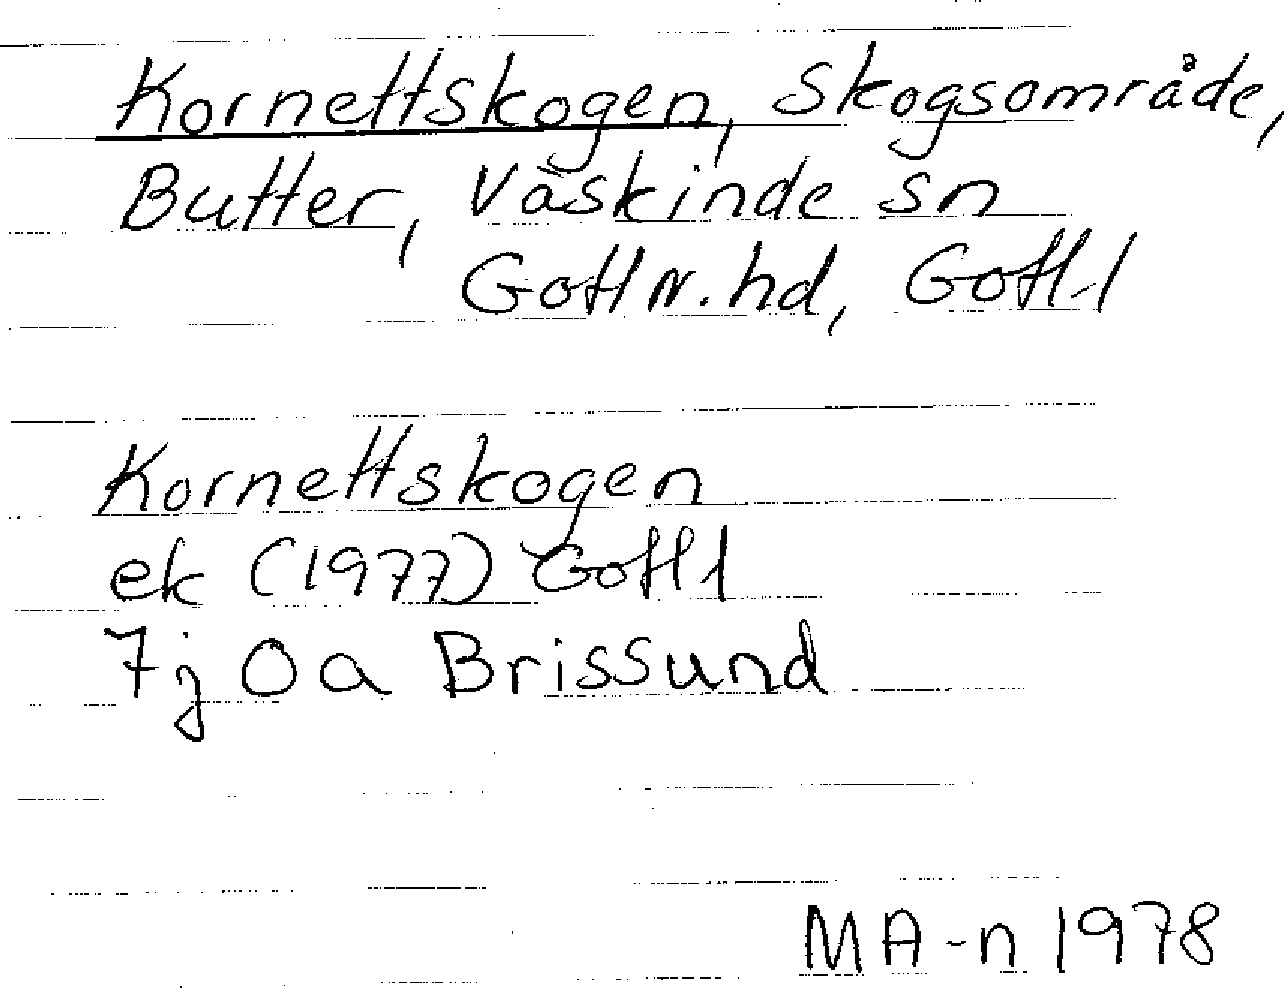 Kornettskogen, skogsområde,
Butter, Väskinde sn
Gotl n. hd, Gotl
Kornettskogen
ek (1977) Gotl
7j 0a Brissund
MA-n 1978